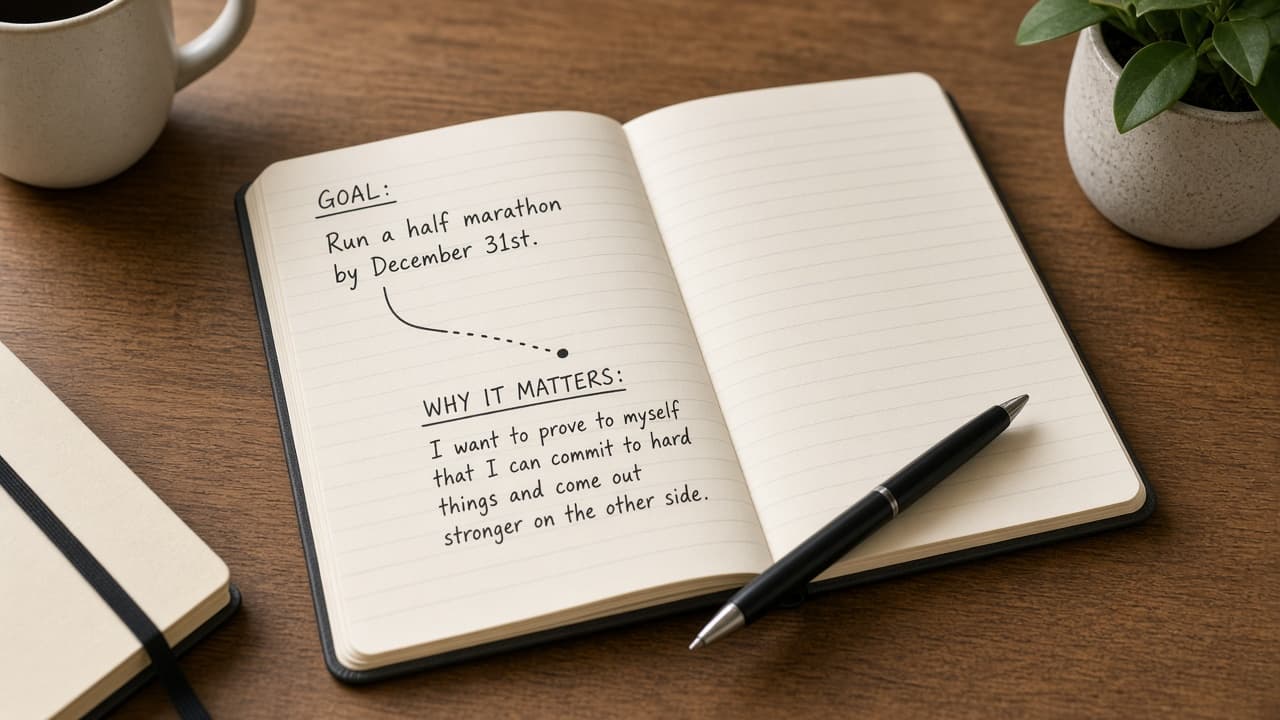 GOAL:
Run a half marathon
by December 31st.
WHY IT MATTERS:
I want to prove to myself
that I can commit to hard
things and come out
stronger on the other side.